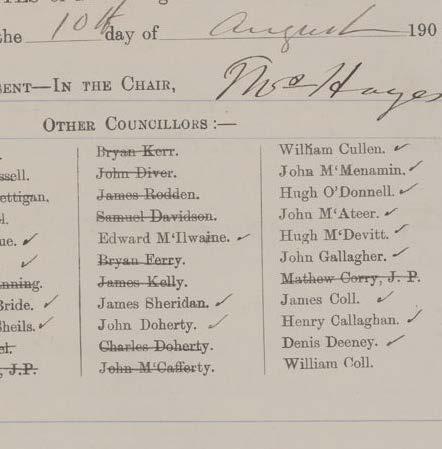 the 10th day of August 190
SENT—IN THE CHAIR, Thos Hayes
OTHER COUNCILLORS:—
Bryan Kerr.
John Diver.
James Rodden.
Samuel Davidson.
Edward M'Ilwaine. ✓
Bryan Ferry.
James Kelly.
James Sheridan. ✓
John Doherty. ✓
Charles Doherty.
John M'Cafferty.
William Cullen. ✓
John M'Menamin. ✓
Hugh O'Donnell. ✓
John M'Ateer. ✓
Hugh M'Devitt. ✓
John Gallagher. ✓
Mathew Corry, J. P.
James Coll. ✓
Henry Callaghan. ✓
Denis Deeney. ✓
William Coll.
ssell.
ettigan.
ue. ✓
✓
nning.
Bride. ✓
Sheils. ✓
, J.P.